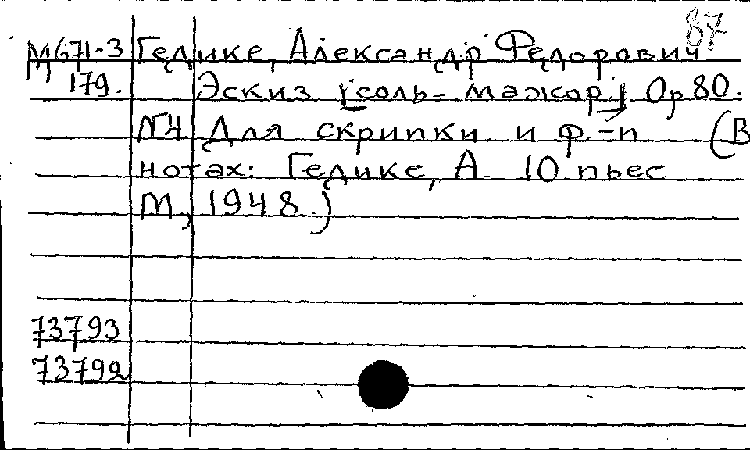 87
М671-3 Гедике, Александр Федорович
179. Эскиз [соль-мажор] Ор 80.
N4 Для скрипки и ф.-п (В
нотах: Гедике, А 10 пьес
М, 1948.)
73793
73792